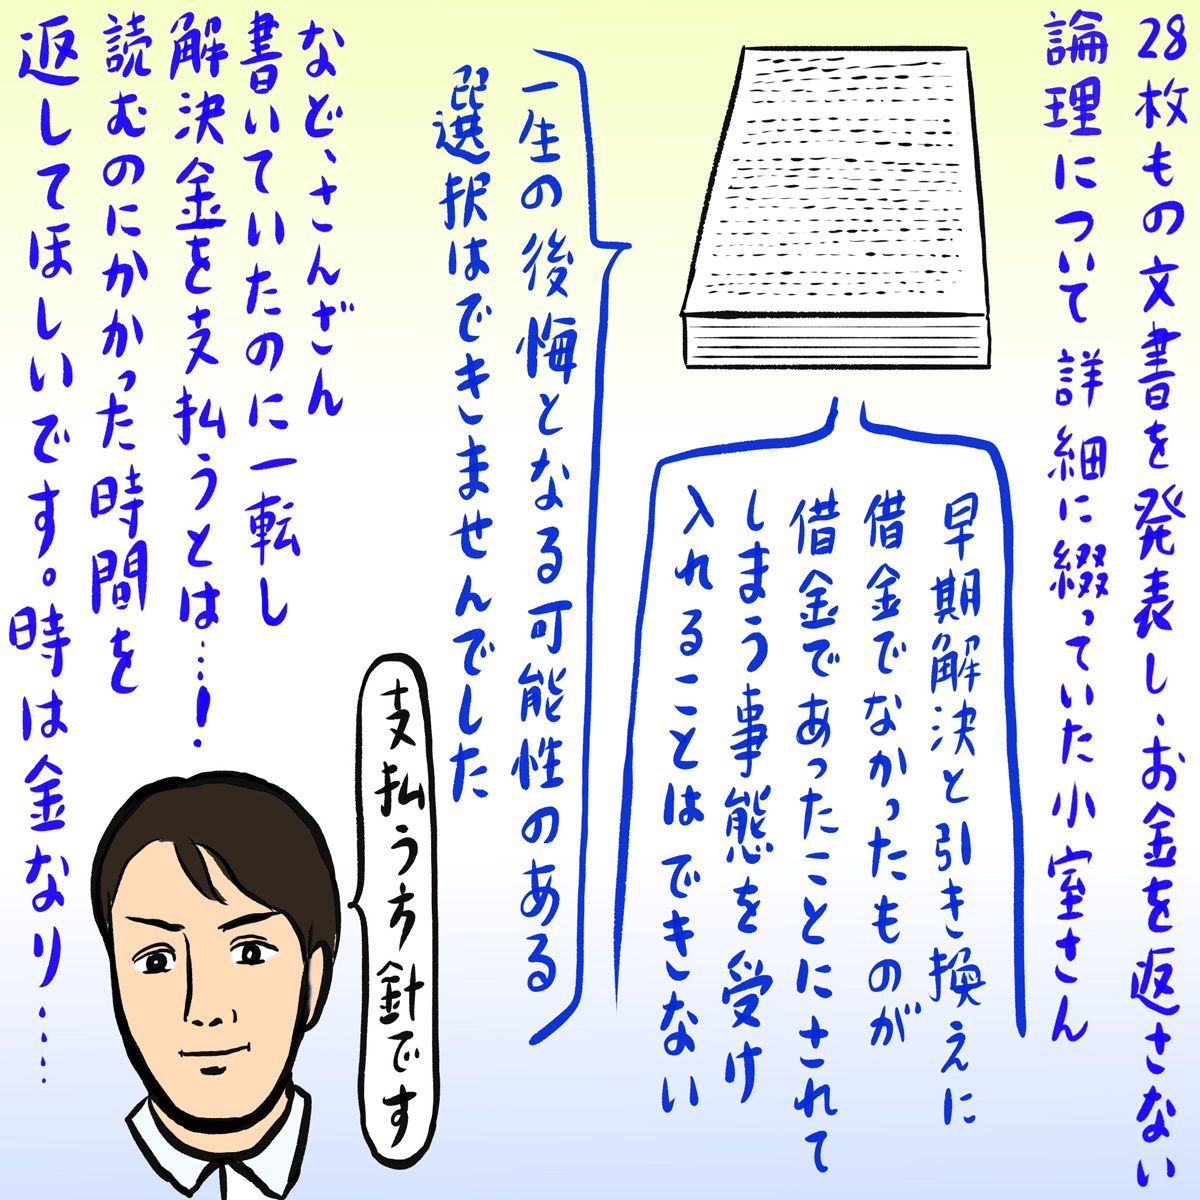 28枚もの文書を発表し、お金を返さない
論理について詳細に綴っていた小室さん
早期解決と引き換えに
借金でなかったものが
借金であったことにされて
しまう事態を受け
入れることはできない
一生の後悔となる可能性のある
選択はできませんでした
など、さんざん
書いていたのに一転し
解決金を支払うとは…!
読むのにかかった時間を
返してほしいです。時は金なり……
支払う方針です